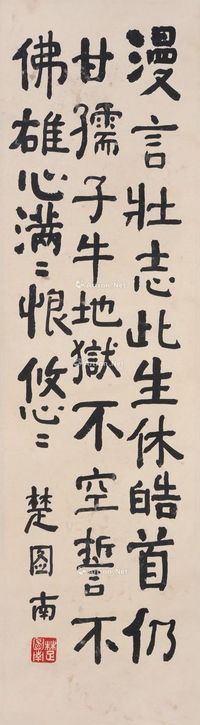 漫言壯志此生休皓首仍
甘孺子牛地獄不空誓不
佛雄心滿〻恨悠〻
楚圖南
楚圖南